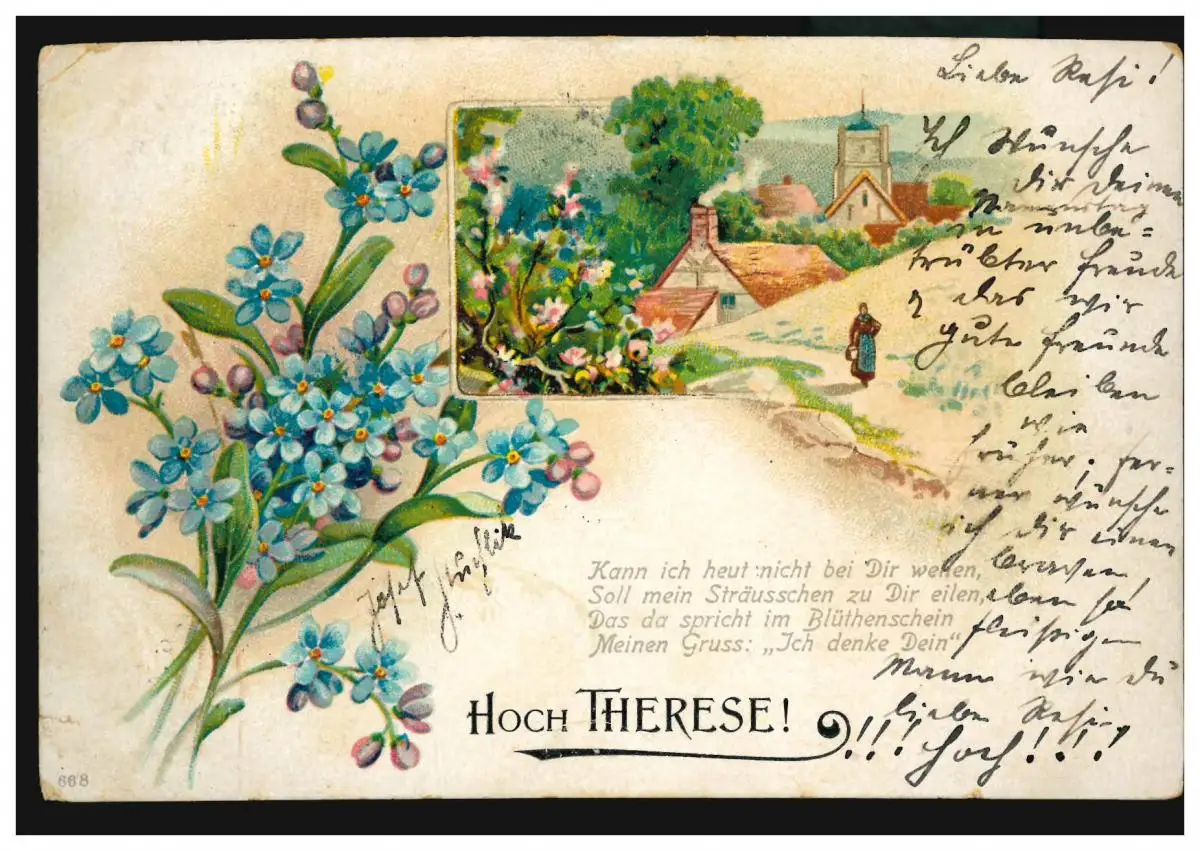 Liebe Resi!
Ich Wünsche
dir deinen
Namenstag
in unbe=
trübter freude
das wir
gute freunde
bleiben
wie
früher, fer-
ner wünsche
ich dir einen
braven
eben so
fleißigen
Mann wie du
liebe Resi
!!! Hoch!.!.!
Josef
Kann ich heut nicht bei Dir weilen,
Soll mein Sträusschen zu Dir eilen,
Das da spricht im Blüthenschein
Meinen Gruss: „Ich denke Dein"
HOCH THERESE!
668